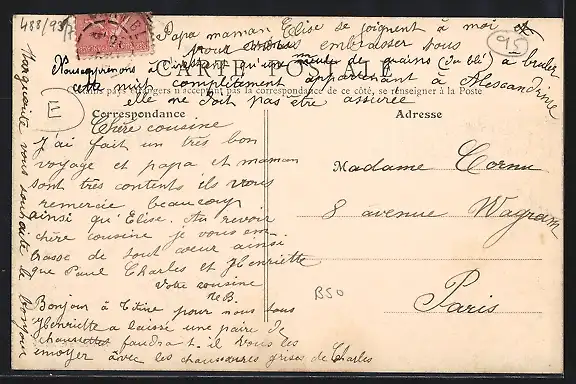 488/93
Papa maman Elise se joignent à moi et
pour vous embrasser tous
Nous apprenons à l'instant qu'une meule de grains (du blé) à bruler
CARTE POSTALE
cette nuit complètement appartenant à Alessandrine
pays étrangers n'acceptent pas la correspondance de ce côté, se renseigner à la Poste
elle ne doit pas être assurée
95
E
Correspondance
Adresse
Chère cousine
J'ai fait un très bon
voyage et papa et maman
sont très contents ils vous
remercie beaucoup
ainsi qu'Elise. Au revoir
chère cousine je vous em
brasse de tout cœur ainsi
que Paul Charles et Henriette
Votre cousine
Bonjour à Titine pour nous tous
Henriette a laissé une paire de
chaussettes faudra t. il vous les
envoyer avec les chaussures grises de Charles
Marguerite vous souhaite le bonjour
Madame Cornu
8 avenue Wagram
Paris
B50